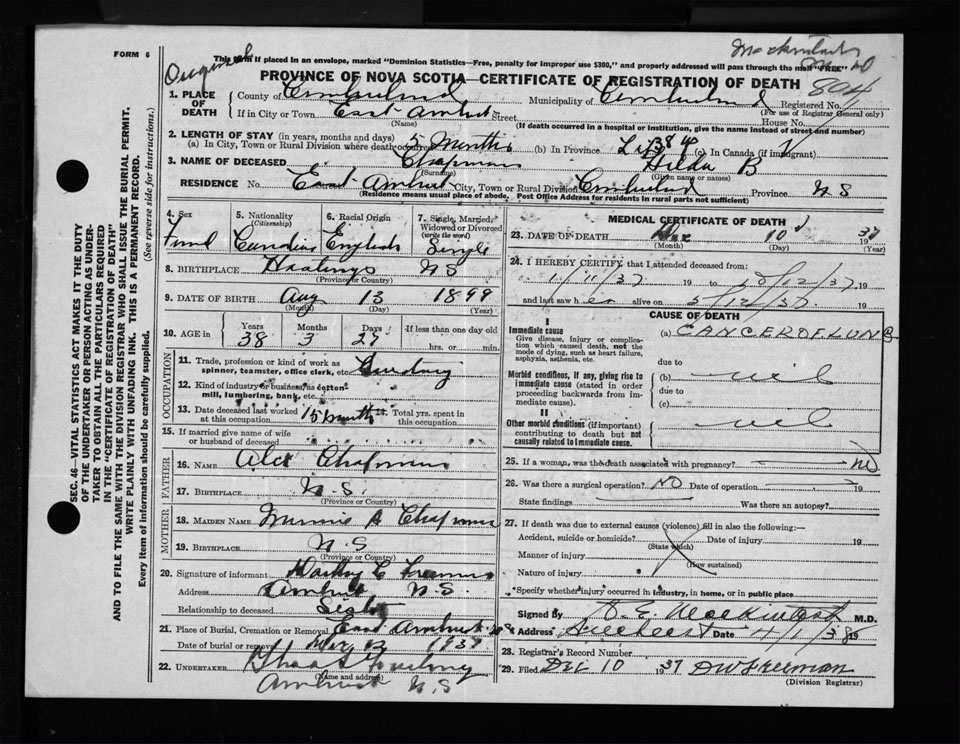 FORM 6
This form if placed in an envelope, marked "Dominion Statistics—Free, penalty for improper use $300," and properly addressed will pass through the mail "FREE"
Original
804
PROVINCE OF NOVA SCOTIA—CERTIFICATE OF REGISTRATION OF DEATH
1. PLACE OF DEATH
County of Cumberland Municipality of Cumberland Registered No.
(For use of Registrar General only)
If in City or Town East Amherst Street House No.
(Name) (If death occurred in a hospital or institution, give the name instead of street and number)
2. LENGTH OF STAY (in years, months and days)
(a) In City, Town or Rural Division where death occurred 5 Months (b) In Province Life (c) In Canada (if immigrant)
3. NAME OF DECEASED Chapman Hilda B
(Surname) (Given name or names)
RESIDENCE No. East Amherst City, Town or Rural Division Cumberland Province N S
(Residence means usual place of abode. Post Office Address for residents in rural parts not sufficient)
4. Sex 5. Nationality (Citizenship) 6. Racial Origin 7. Single, Married, Widowed or Divorced (write the word)
English Single
8. BIRTHPLACE Hastings N S
(Province or Country)
9. DATE OF BIRTH Aug 13 1899
(Month) (Day) (Year)
10. AGE in Years Months Days If less than one day old
38 3 27 hrs. or min.
OCCUPATION
11. Trade, profession or kind of work as spinner, teamster, office clerk, etc.
12. Kind of industry or business, as cotton mill, lumbering, bank, etc.
13. Date deceased last worked at this occupation 15 months 14. Total yrs. spent in this occupation
15. If married give name of wife or husband of deceased
FATHER
16. NAME Alex Chapman
17. BIRTHPLACE N.S.
(Province or Country)
MOTHER
18. MAIDEN NAME Minnie Chapman
19. BIRTHPLACE N.S
(Province or Country)
20. Signature of informant
Address Amherst N.S.
Relationship to deceased Sister
21. Place of Burial, Cremation or Removal East Amherst N S
Date of burial or removal Dec 1937
22. UNDERTAKER
(Name and address)
Amherst N.S
MEDICAL CERTIFICATE OF DEATH
23. DATE OF DEATH Dec 10 1937
(Month) (Day) (Year)
24. I HEREBY CERTIFY that I attended deceased from:
11/11/37 19 to 5/12/37 19
and last saw her alive on 5/12/37 19
CAUSE OF DEATH
I
Immediate cause
Give disease, injury or complication which caused death, not the mode of dying, such as heart failure, asphyxia, asthenia, etc.
(a) CANCER OF LUNG
due to
Morbid conditions, if any, giving rise to immediate cause (stated in order proceeding backwards from immediate cause).
(b) nil
due to
(c)
II
Other morbid conditions (if important) contributing to death but not causally related to immediate cause.
nil
25. If a woman, was the death associated with pregnancy? NO
26. Was there a surgical operation? NO Date of operation 19
State findings Was there an autopsy?
27. If death was due to external causes (violence) fill in also the following:—
Accident, suicide or homicide? Date of injury 19
(State which)
Manner of injury
(How sustained)
Nature of injury
*Specify whether injury occurred in industry, in home, or in public place
Signed by M.D.
Address Date 4/1/38 19
28. Registrar's Record Number
29. Filed Dec 10 1937 D W Freeman
(Division Registrar)
SEC. 46—VITAL STATISTICS ACT MAKES IT THE DUTY OF THE UNDERTAKER OR PERSON ACTING AS UNDERTAKER TO OBTAIN ALL THE PARTICULARS REQUIRED IN THE "CERTIFICATE OF REGISTRATION OF DEATH"
AND TO FILE THE SAME WITH THE DIVISION REGISTRAR WHO SHALL ISSUE THE BURIAL PERMIT.
WRITE PLAINLY WITH UNFADING INK. THIS IS A PERMANENT RECORD.
Every item of information should be carefully supplied. (See reverse side for instructions.)